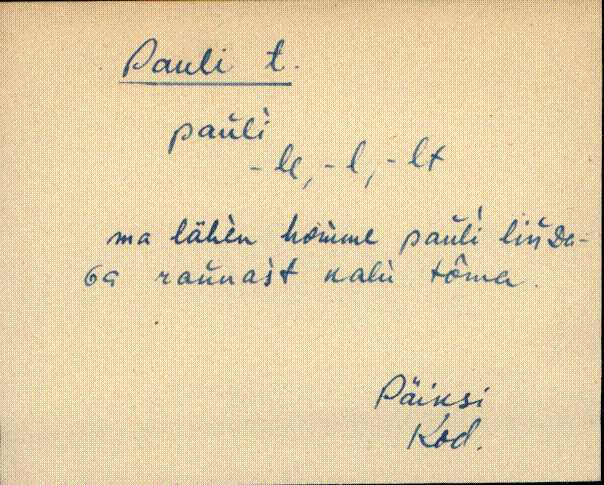 Pauli t.
pau̇̀li
-le, -l, -lt
ma lähèn hom̀me pau̇̀li liǹ̀Da-
ga raǹ̀nast kalù tõma.
Päiksi
Kod.